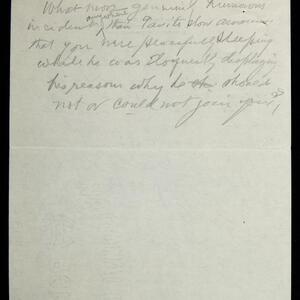 What more genuinely humorous
incident anywhere than Tavite's slow
that you were peacefully sleeping
while he was eloquently displaying
his reasons why he should
not or could not join you!